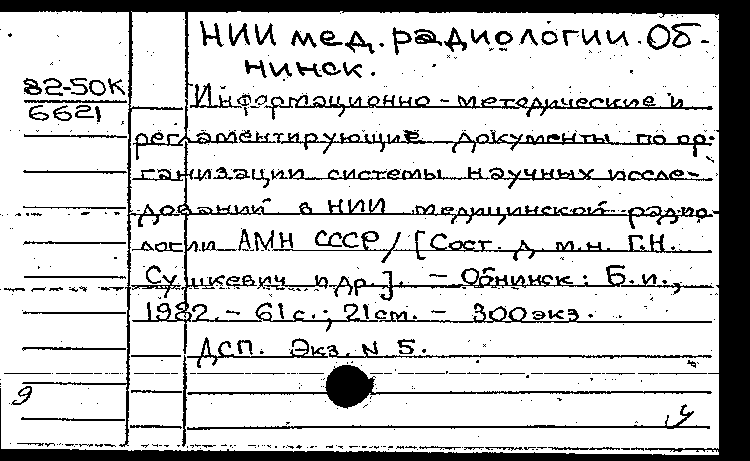 НИИ мед. радиологии. Об-
нинск.
82-50К
6621
Информационно-методические и
регламентирующие документы по ор-
ганизации системы научных иссле-
дований в НИИ медицинской радио-
логии АМН СССР / [Сост. д. м.н. Г.Н.
Сушкевич и др.]. – Обнинск: Б.и.,
1982. – 61 с.; 21 см. – 300 экз.
ДСП. Экз. N 5.
9